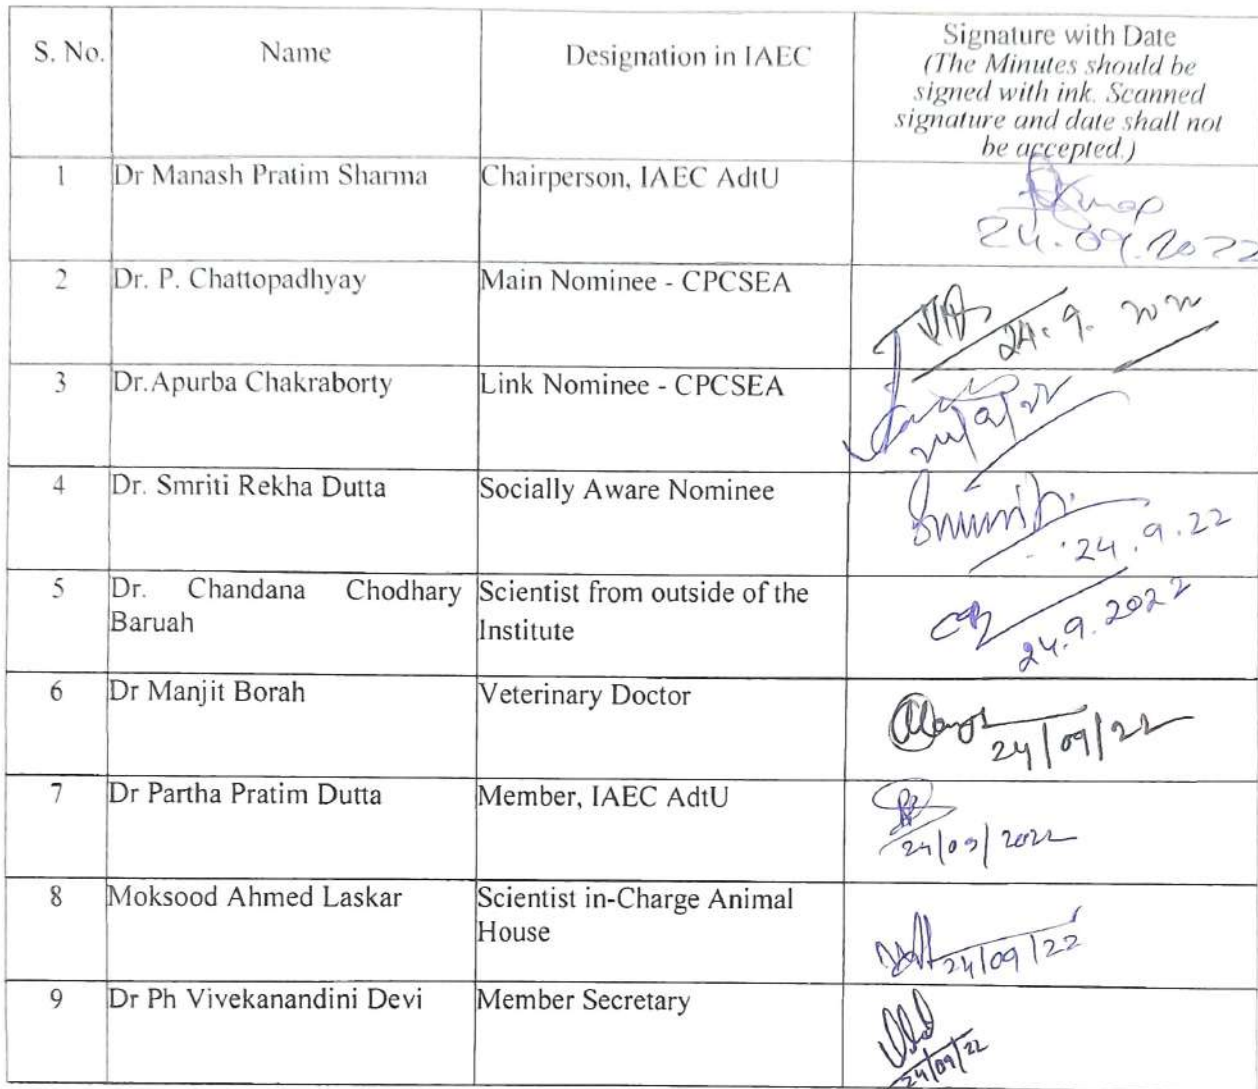 S. No.
Name
Designation in IAEC
Signature with Date
(The Minutes should be
signed with ink. Scanned
signature and date shall not
be accepted.)
1 Dr Manash Pratim Sharma Chairperson, IAEC AdtU
24.09.2022
2 Dr. P. Chattopadhyay Main Nominee - CPCSEA
24.9.
3 Dr.Apurba Chakraborty Link Nominee - CPCSEA
24/9/22
4 Dr. Smriti Rekha Dutta Socially Aware Nominee
Smriti
24.9.22
5 Dr. Chandana Chodhary Scientist from outside of the
Baruah Institute
24.9.2022
6 Dr Manjit Borah Veterinary Doctor
24/09/22
7 Dr Partha Pratim Dutta Member, IAEC AdtU
24/09/2022
8 Moksood Ahmed Laskar Scientist in-Charge Animal
House
24/09/22
9 Dr Ph Vivekanandini Devi Member Secretary
24/09/22